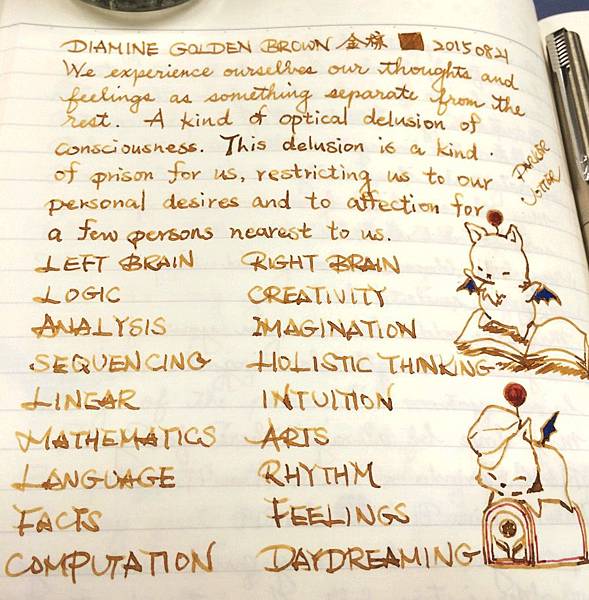 DIAMINE GOLDEN BROWN 金棕 20150821
We experience ourselves our thoughts and
feelings as something separate from the
rest. A kind of optical delusion of
consciousness. This delusion is a kind
of prison for us, restricting us to our
personal desires and to affection for
a few persons nearest to us.
PARKER
JOTTER
LEFT BRAIN RIGHT BRAIN
LOGIC CREATIVITY
ANALYSIS IMAGINATION
SEQUENCING HOLISTIC THINKING
LINEAR INTUITION
MATHEMATICS ARTS
LANGUAGE RHYTHM
FACTS FEELINGS
COMPUTATION DAYDREAMING